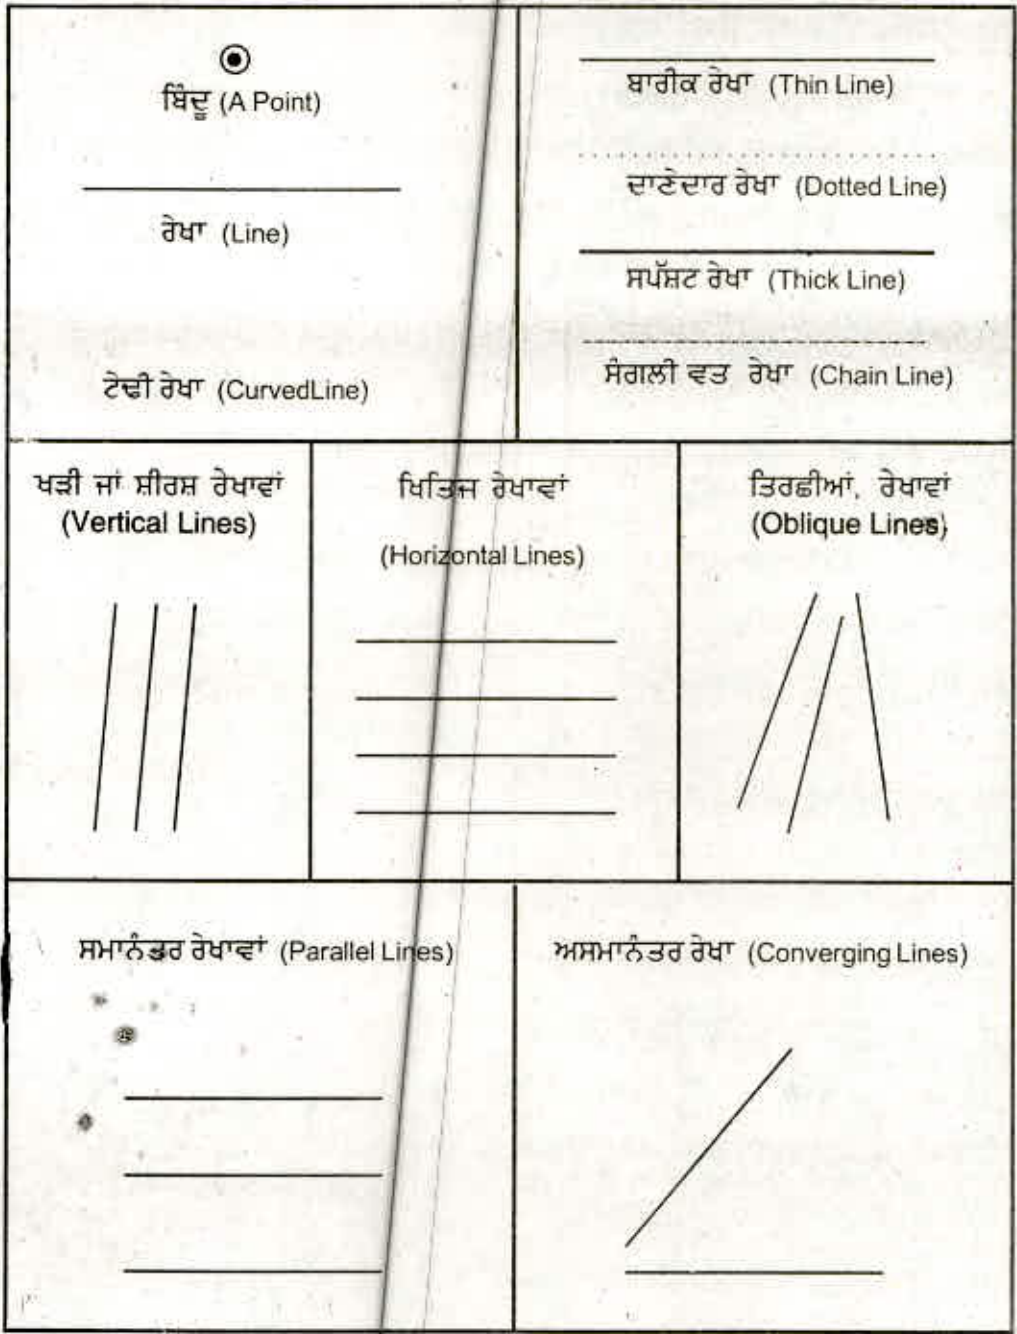 ਬਿੰਦੂ (A Point)
ਰੇਖਾ (Line)
ਟੇਢੀ ਰੇਖਾ (CurvedLine)
ਬਾਰੀਕ ਰੇਖਾ (Thin Line)
ਦਾਣੇਦਾਰ ਰੇਖਾ (Dotted Line)
ਸਪੱਸ਼ਟ ਰੇਖਾ (Thick Line)
ਸੰਗਲੀ ਵਤ ਰੇਖਾ (Chain Line)
ਖੜੀ ਜਾਂ ਸ਼ੀਰਸ਼ ਰੇਖਾਵਾਂ
(Vertical Lines)
ਖਿਤਿਜ ਰੇਖਾਵਾਂ
(Horizontal Lines)
ਤਿਰਛੀਆਂ, ਰੇਖਾਵਾਂ
(Oblique Lines)
ਸਮਾਨੰਤਰ ਰੇਖਾਵਾਂ (Parallel Lines)
ਅਸਮਾਨੰਤਰ ਰੇਖਾ (Converging Lines)